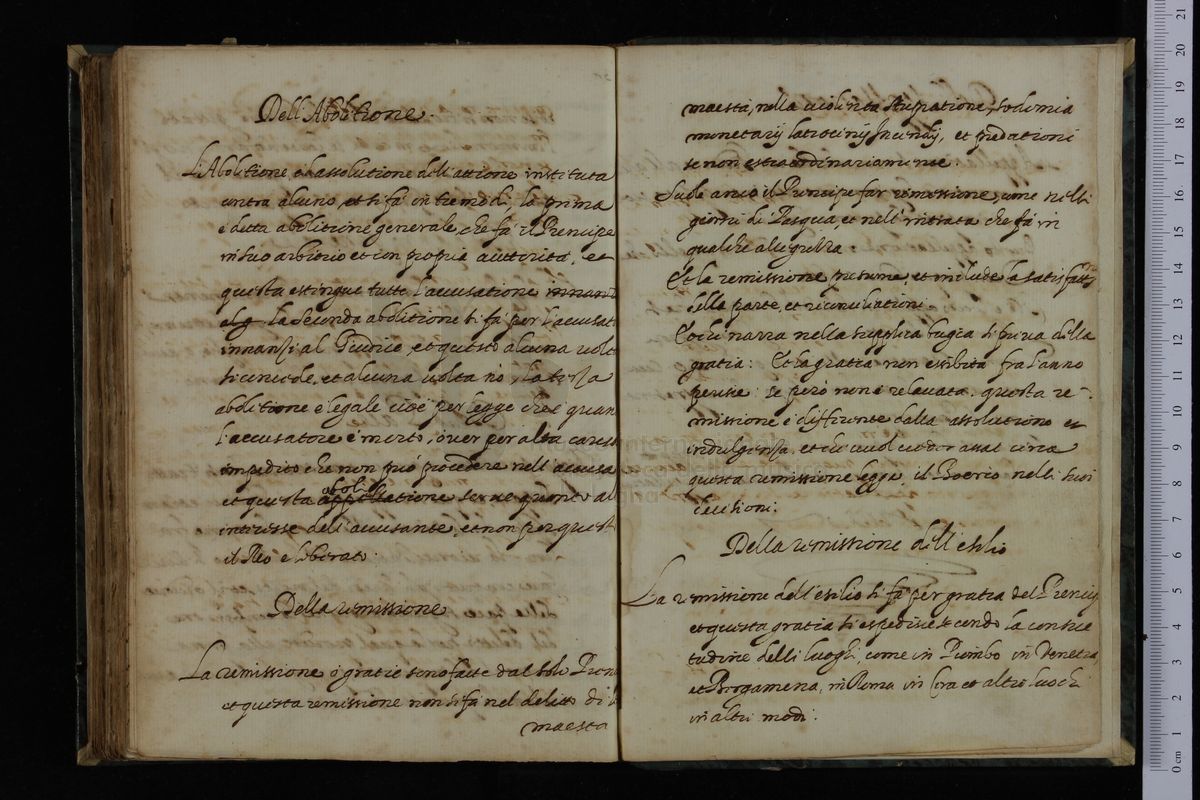 Dell'Abolitione.
L'Abolitione è l'assolutione dell'attione instituta
contra alcuno, et si fà in tre modi, la prima
è detta abolitione generale, che fà il Prencipe
in suo arbitrio et con propria autorità, et
questa estingue tutte l'accusatione
la seconda abolitione si fà per l'accusat
innanzi al Giudice, et questo alcuna volt
si concede, et alcuna volta nò, la terza
abolitione è legale cioè per legge che è quan
l'accusatore è morto, over per altra causa
impedito che non può procedere nell'accusa
et questa abolitione serve quanto al
interesse dell'accusante, et non per quest
il Reo è liberato.
Della remissione
La remissione ò gratie sono fatte dal solo Pren
et questa remissione non si fà nel delitto di
maestà
maestà, nella violenta stupratione, sodomia
monetarij latrocinij Incendij, et predationi
se non estraordinariamente.
Suole anco il Principe far remissione come nelli
giorni di Pasqua, et nell'intrata che fà in
qualche allegrezza.
Et la remissione presume et include la satisfatt
della parte, et reconciliationi.
Et chi narra nella supplica bugia si priva della
gratia: Et la gratia non esibita fra l'anno
perisce se però non è relevata. questa re-
missione è differente dalla assolutione et
indulgenza, et chi vuol veder assai circa
questa remissione legge il Boerio nelli suoi
decisioni.
Della remissione dell'esilio
La remissione dell'esilio si fà per gratia del Prencip
et questa gratia si espedisce secondo la consue
tudine delli luoghi, come in Piombo in Venetia,
et Bergamena, in Roma in Cera et altri luochi
in altri modi.